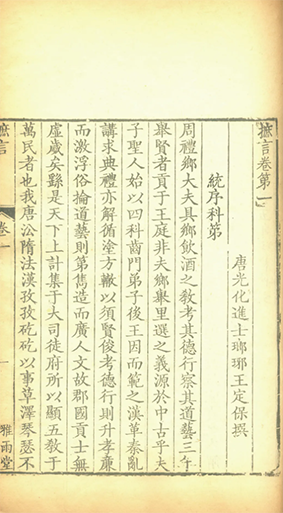 摭言卷第一
唐光化進士瑯琊王定保撰
統序科第
周禮鄉大夫具鄉飲酒之教考其德行察其道藝三年
舉賢者貢于王庭非夫鄉舉里選之義源於中古乎夫
子聖人始以四科齒門弟子後王因而範之漢革秦亂
講求典禮亦解循塗方轍以須賢俊考德行則升孝廉
而激浮俗掄道藝則第雋造而廣人文故郡國貢士無
虛歲矣繇是天下上計集于大司徒府所以顯五教于
萬民者也我唐㳂隋法漢孜孜矻矻以事草澤琴瑟不
摭言
卷一
雅雨堂